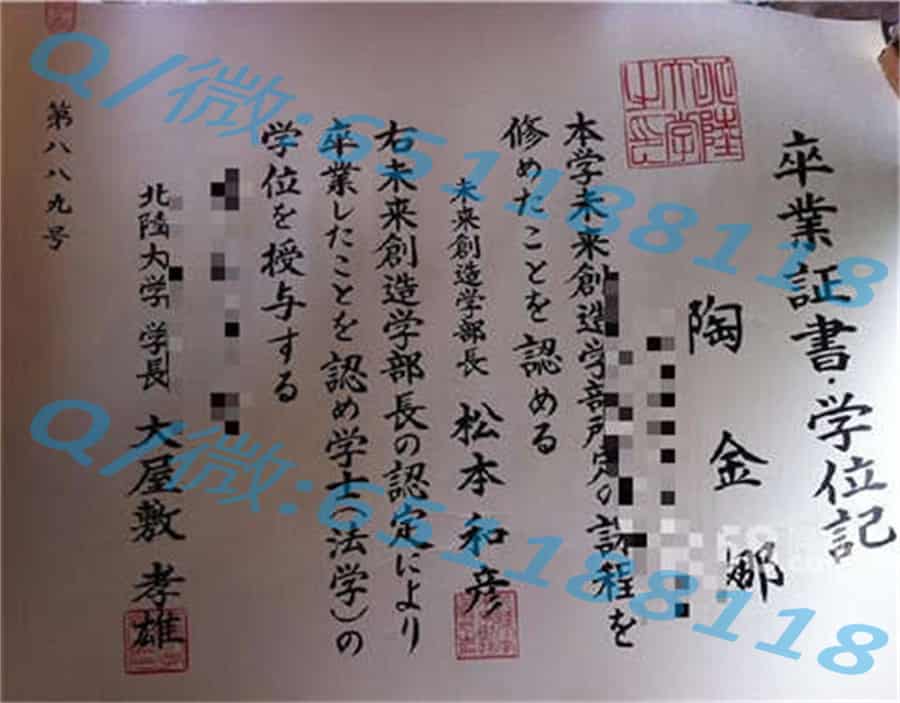 卒業証書・学位記
陶金娜
本学未来創造学部所定の課程を
修めたことを認める
未来創造学部長 松本和彦
右未来創造学部長の認定により
卒業したことを認め学士(法学)の
学位を授与する
北陸大学学長 大屋敷孝雄
第八八九号
北陸
大学
之印
Q/微:651188118
Q/微:651188118